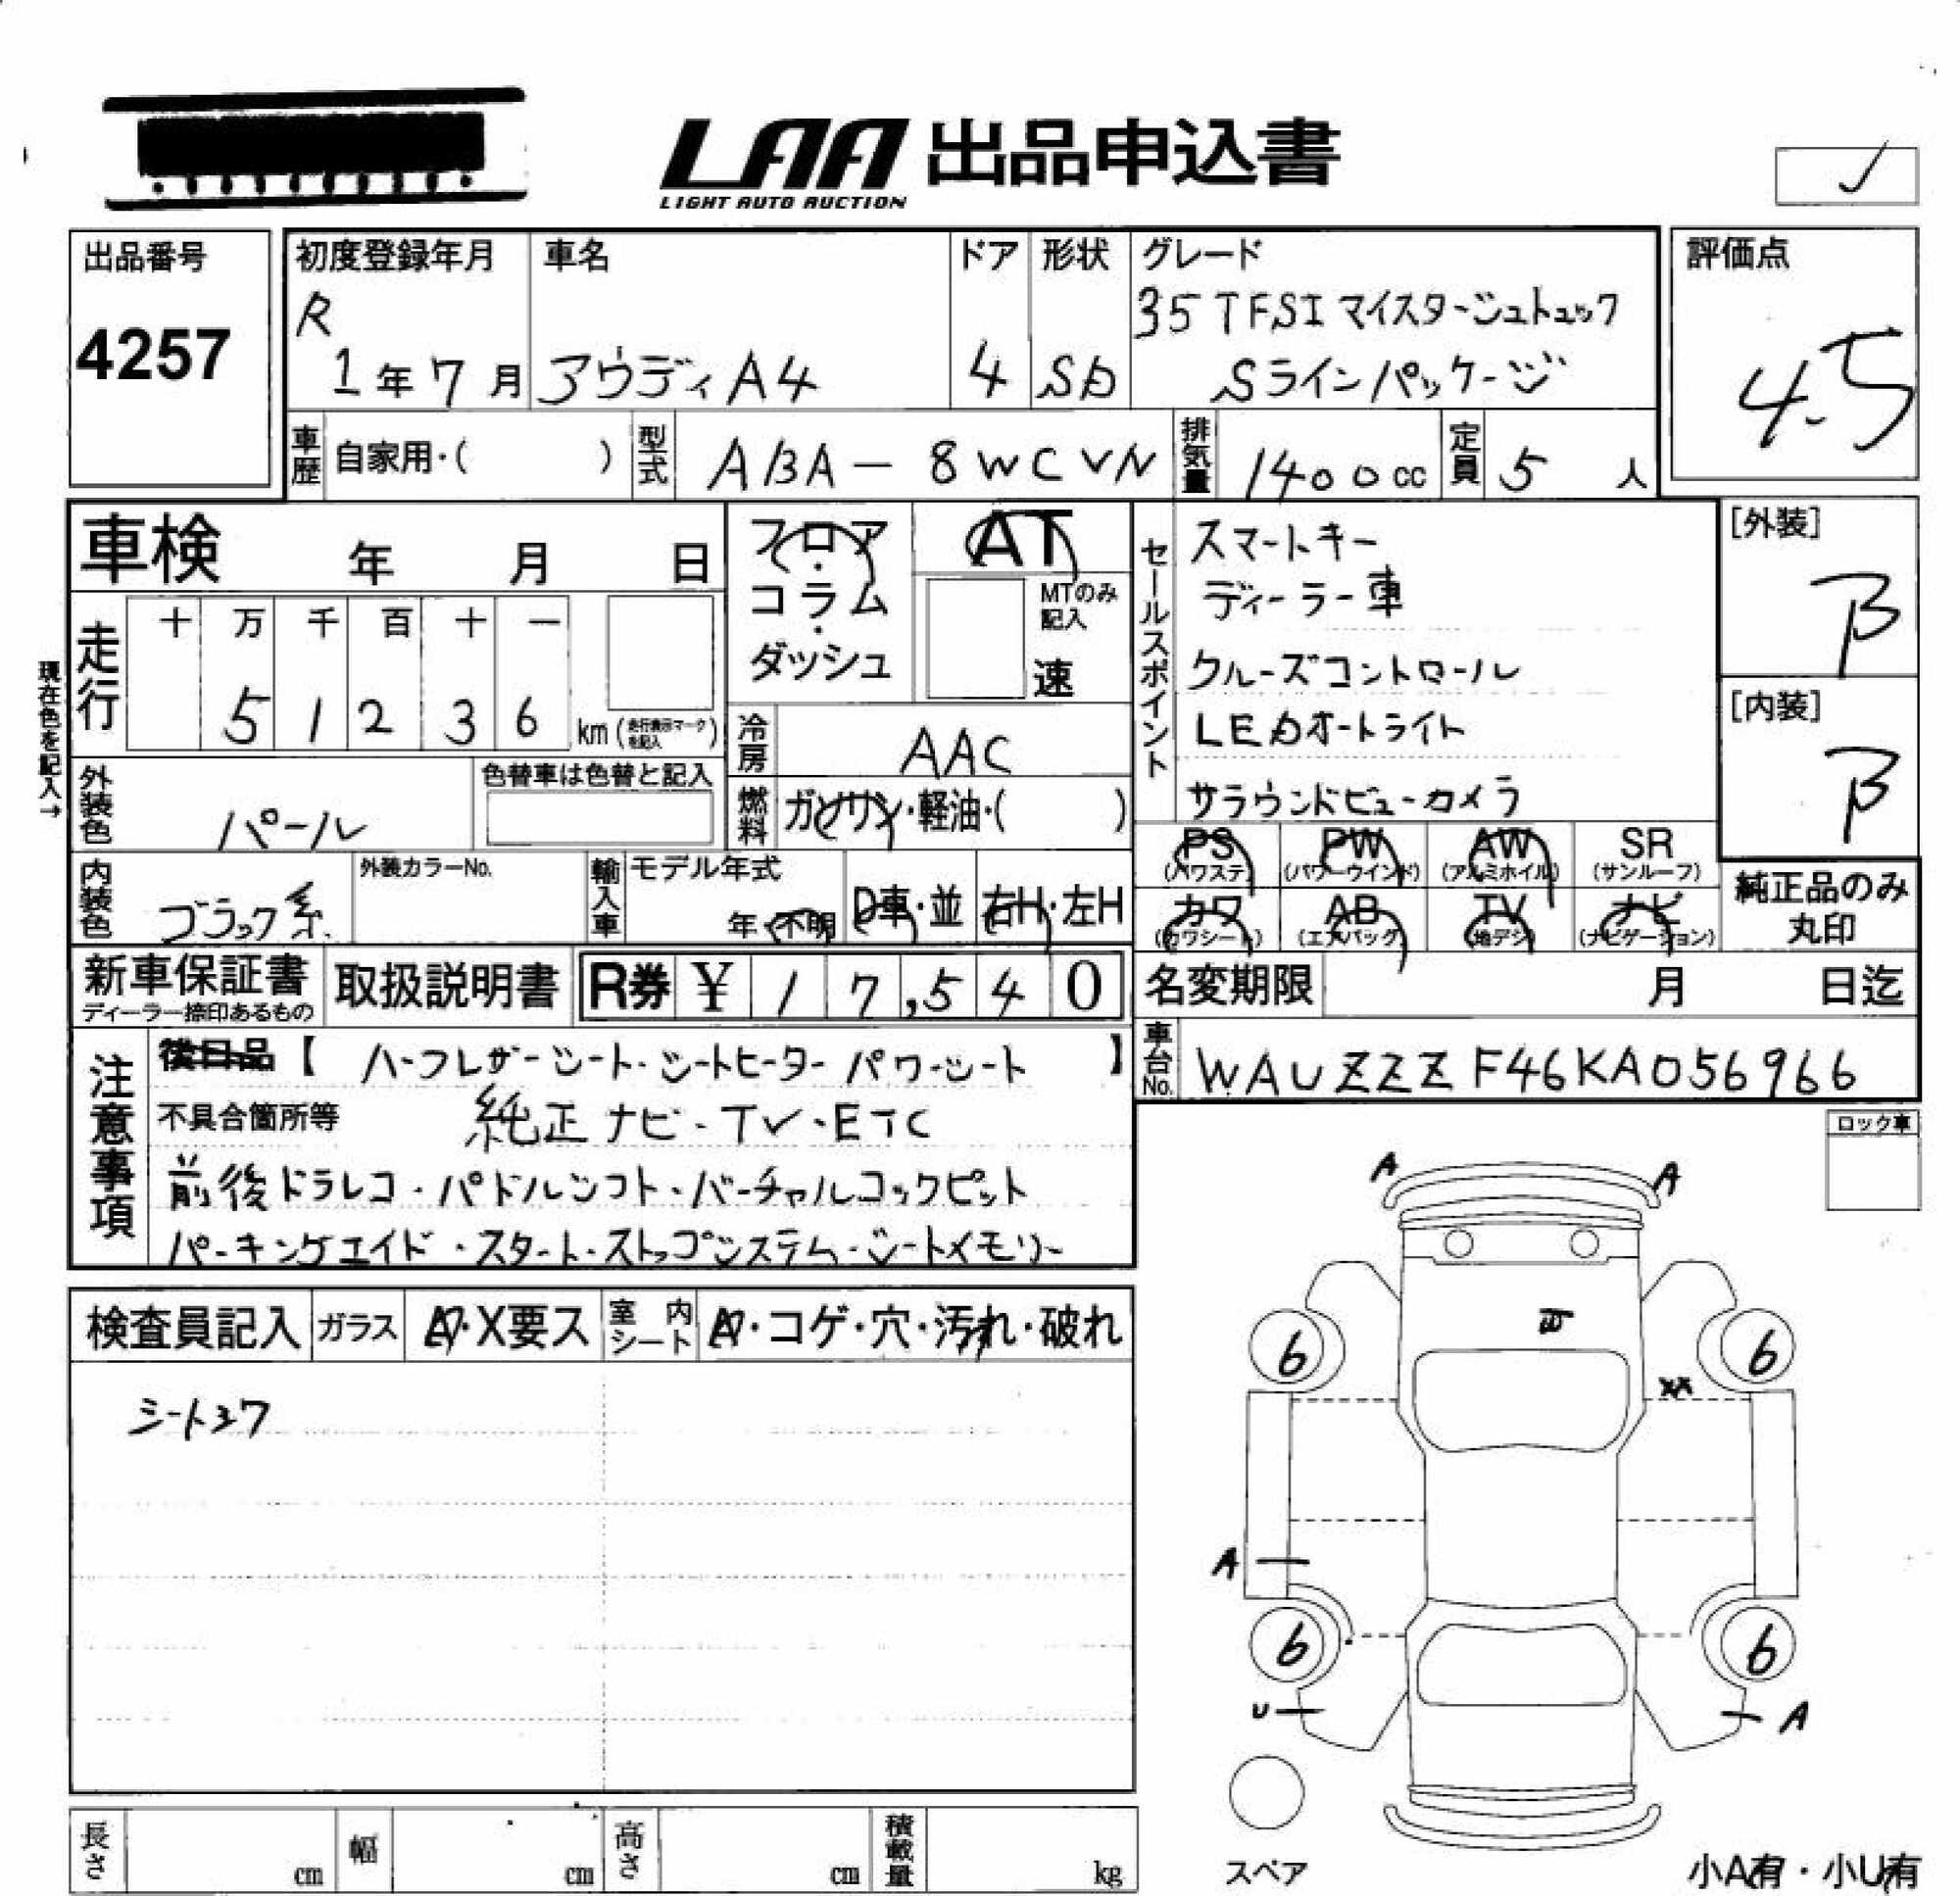 LAA 出品申込書
LIGHT AUTO AUCTION
出品番号
4257
初度登録年月
R
1年7月
車名
アウディA4
ドア
4
形状
SD
グレード
35 TFSI マイスターシュトュック
Sラインパッケージ
評価点
4.5
車歴 自家用・( )
型式 ABA-8WCVN
排気量 1400cc
定員 5人
車検 年 月 日
フロア・コラム・ダッシュ
AT
MTのみ記入
速
走行
十 万 千 百 十 一
5 1 2 3 6 km(走行表示マークを記入)
現在色を記入→
冷房 AAC
燃料 ガソリン・軽油・( )
外装色 パール
色替車は色替と記入
内装色 ブラック系
外装カラーNo.
輸入車
モデル年式
年・不明
D車・並
右H・左H
セールスポイント
スマートキー
ディーラー車
クルーズコントロール
LEDオートライト
サラウンドビューカメラ
[外装]
B
[内装]
B
PS (パワステ) PW (パワーウインド) AW (アルミホイル) SR (サンルーフ)
カワ (カワシート) AB (エアバッグ) TV (地デジ) ナビ (ナビゲーション)
純正品のみ丸印
新車保証書
ディーラー捺印あるもの
取扱説明書
R券 ¥ 17,540
名変期限 月 日迄
車台No. WAUZZZF46KA056966
注意事項
後日品【 ハーフレザーシート・シートヒーター パワーシート 】
不具合箇所等 純正ナビ・TV・ETC
前後ドラレコ・パドルシフト・バーチャルコックピット
パーキングエイド・スタート・ストップシステム・シートメモリー
ロック車
検査員記入
ガラス
A・X要ス
室内シート
A・コゲ・穴・汚れ・破れ
A A
6 6
XX
A
6 6
U A
スペア
長さ cm
幅 cm
高さ cm
積載量 kg
小A有・小U有